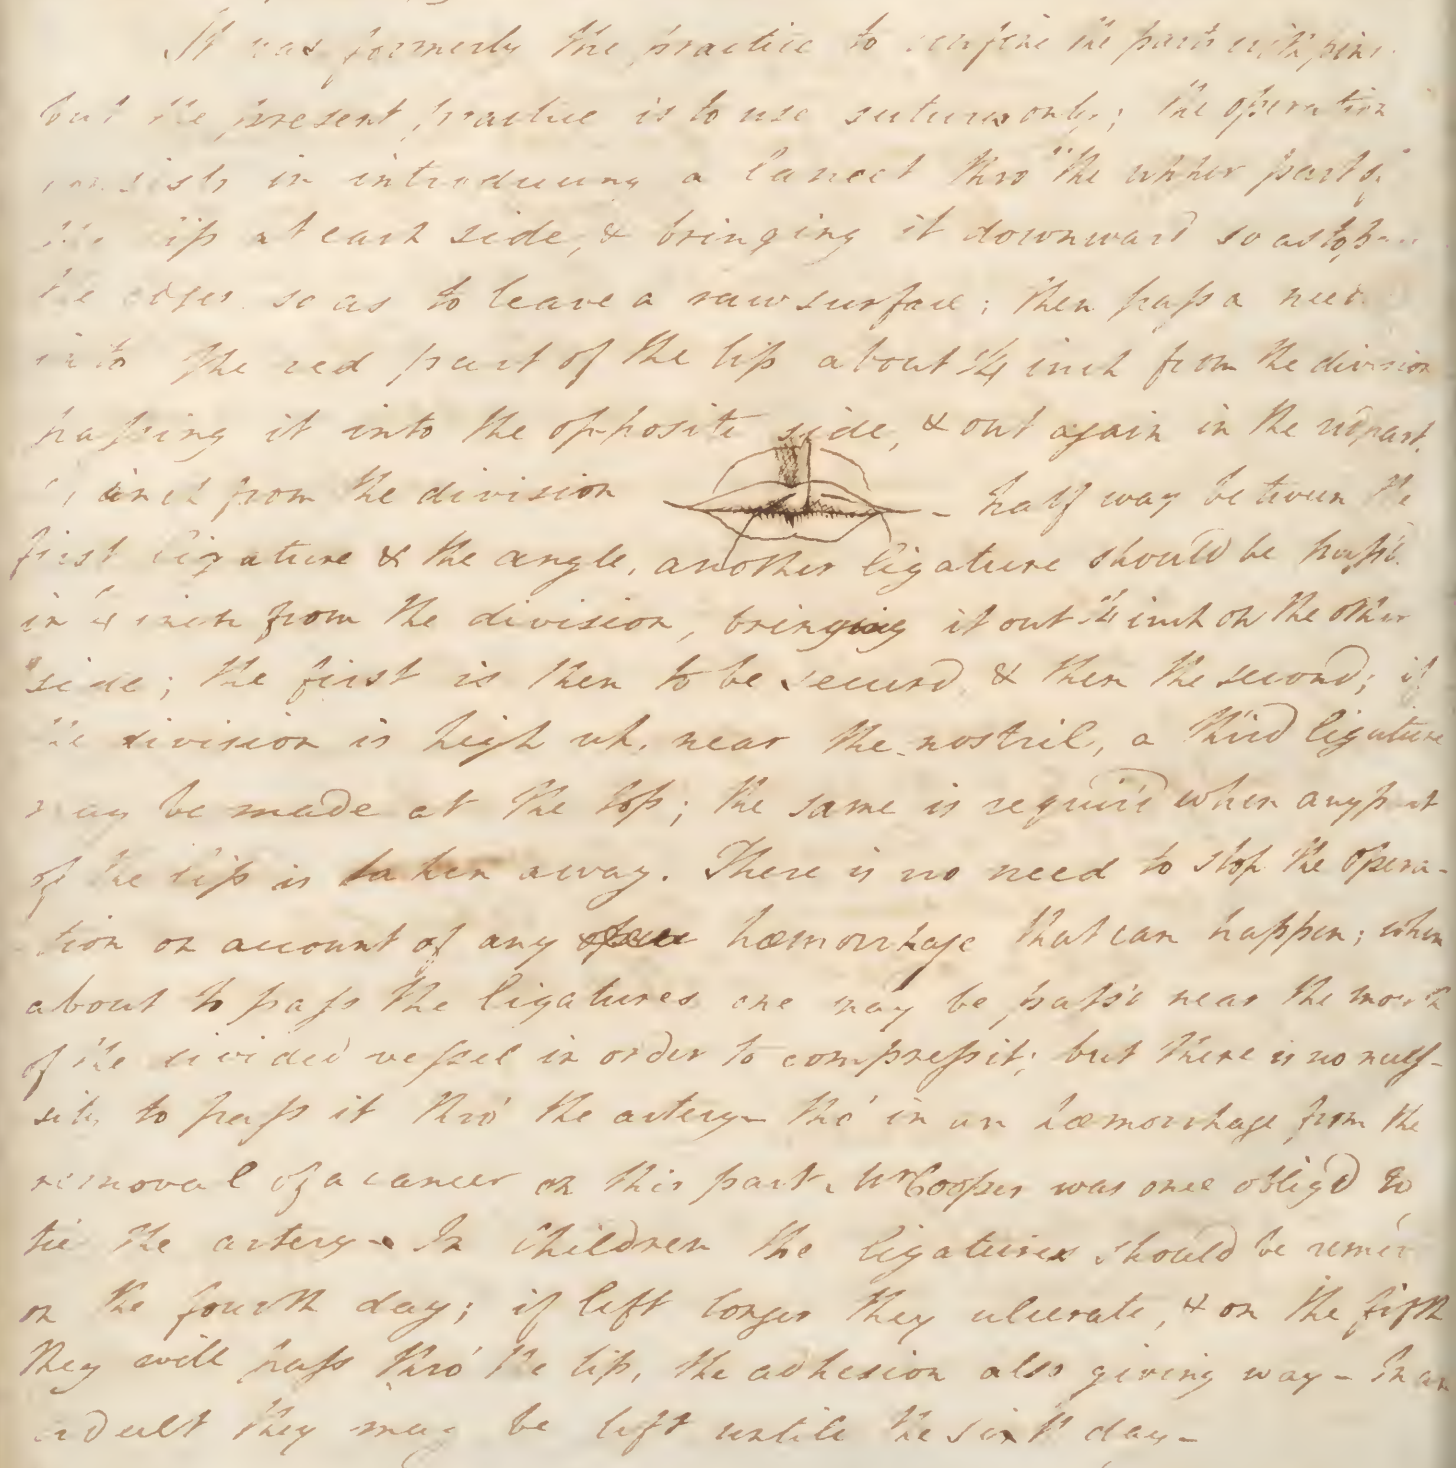 It was formerly the practice to confine the parts with pins
but the present practice is to use sutures only; the operation
consists in introducing a lancet thro' the upper part of
the lip at each side, & bringing it downward so as to
the edges so as to leave a raw surface; then pass a
into the red part of the lip about 1/4 inch from the division
passing it into the opposite side, & out again in the red part
inch from the division - half way between the
first ligature & the angle, another ligature should be pass'd
in 1/4 inch from the division, bringing it out 1/4 inch on the other
side; the first is then to be secured & then the second; if
the division is high up, near the nostril, a third ligature
may be made at the top; the same is requir'd when any part
of the lip is taken away. There is no need to stop the opera-
tion on account of any hæmorrhage that can happen; when
about to pass the ligatures one may be pass'd near the mouth
of the divided vessel in order to compress it; but there is no neces-
sity to pass it thro' the artery - tho' in an hæmorrhage from the
removal of a cancer on this part, Mr Cooper was once oblig'd to
tie the artery - In Children the ligatures should be remov'd
on the fourth day; if left longer they ulcerate, & on the fifth
they will pass thro' the lip, the adhesion also giving way - In an
adult they may be left until the sixth day -